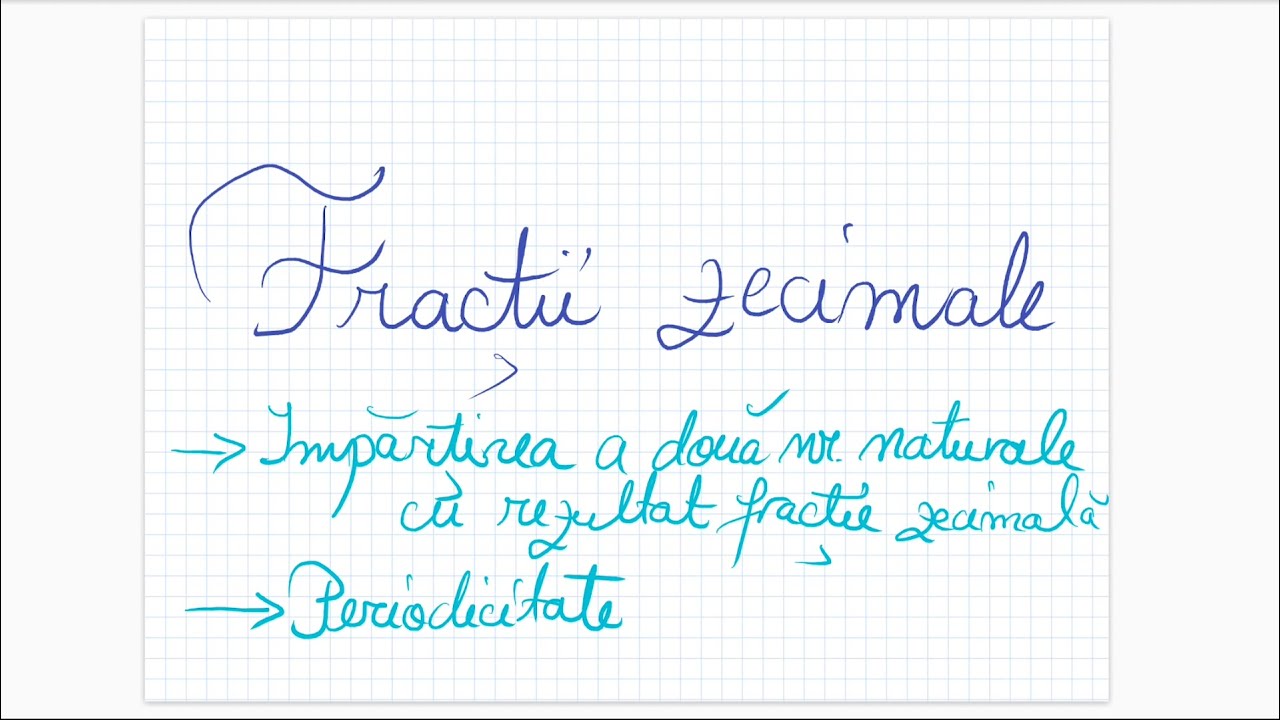 Fracții zecimale
→ Împărțirea a două nr. naturale
cu rezultat fracție zecimală
→ Periodicitate